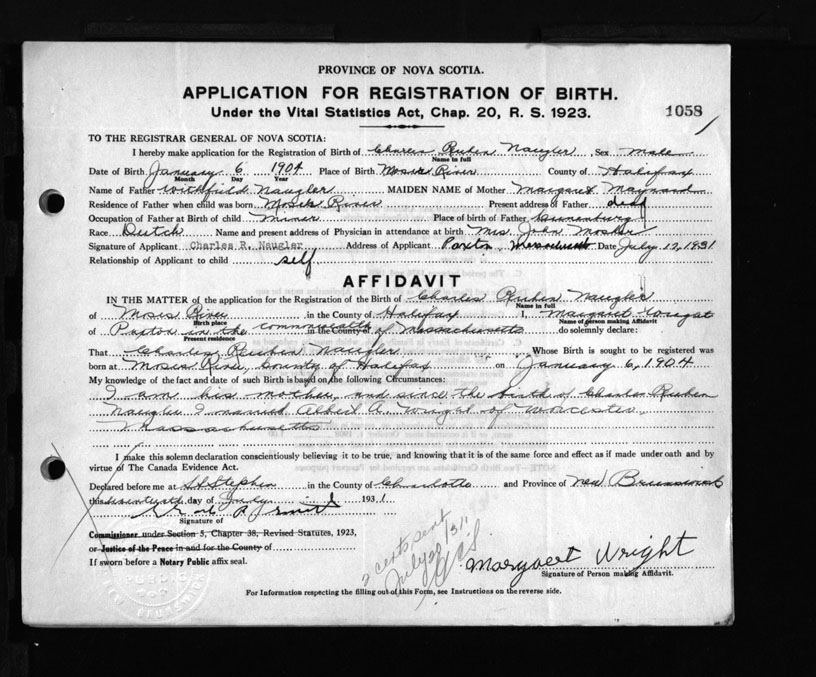 PROVINCE OF NOVA SCOTIA.
APPLICATION FOR REGISTRATION OF BIRTH.
Under the Vital Statistics Act, Chap. 20, R. S. 1923.
1058
TO THE REGISTRAR GENERAL OF NOVA SCOTIA:
I hereby make application for the Registration of Birth of Charles Ruben Naugler, Sex male
Name in full
Date of Birth January 6 1904 Place of Birth Moses River County of Halifax
Month Day Year
Name of Father Naugler MAIDEN NAME of Mother Margaret Maynard
Residence of Father when child was born Moses River Present address of Father dead
Occupation of Father at Birth of child Miner Place of birth of Father Lunenburg
Race Dutch Name and present address of Physician in attendance at birth Mrs. John Mosher
Signature of Applicant Charles R. Naugler Address of Applicant Paxton, Massachusetts Date July 12, 1931
Relationship of Applicant to child self
AFFIDAVIT
IN THE MATTER of the application for the Registration of the Birth of Charles Ruben Naugler
Name in full
of Moses River in the County of Halifax I, Margaret Wright
Birth place Name of person making Affidavit
of Paxton in the commonwealth in the County of of Massachusetts do solemnly declare:
Present residence
That Charles Reuben Naugler Whose Birth is sought to be registered was
born at Moses River, County of Halifax on January 6, 1904
My knowledge of the fact and date of such Birth is based on the following Circumstances:
I am his mother, and since the birth of Charles Ruben
Naugler I married Albert A. Wright of Worcester,
Massachusetts
I make this solemn declaration conscientiously believing it to be true, and knowing that it is of the same force and effect as if made under oath and by
virtue of The Canada Evidence Act.
Declared before me at St. Stephen in the County of Charlotte and Province of New Brunswick
this day of July 1931
Signature of
Commissioner under Section 5, Chapter 38, Revised Statutes, 1923,
or Justice of the Peace in and for the County of
If sworn before a Notary Public affix seal.
2 cents sent
July 22/31
Margaret Wright
Signature of Person making Affidavit.
For Information respecting the filling out of this Form, see Instructions on the reverse side.
PUBLIC
NEW BRUNSWICK